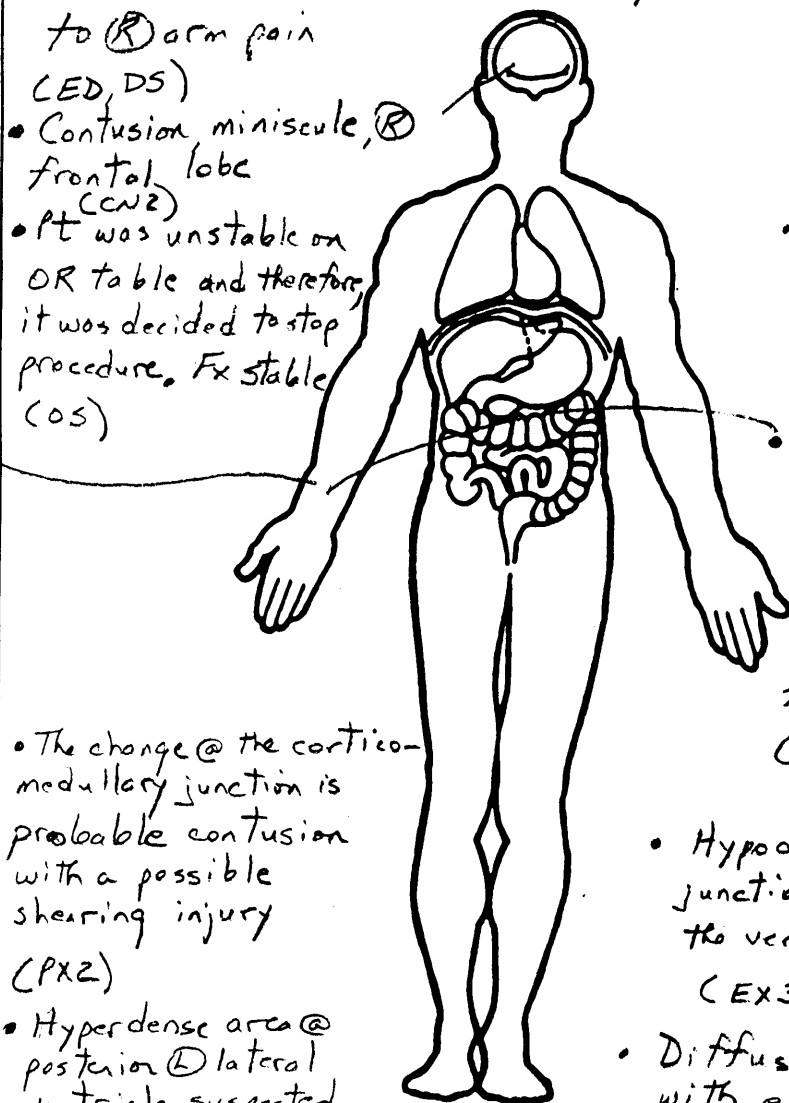 to Ⓡ arm pain
(ED, DS)
• Contusion, miniscule, Ⓡ
frontal lobe
(CN2)
• Pt was unstable on
OR table and therefore,
it was decided to stop
procedure. Fx stable
(OS)
• The change @ the cortico-
medullary junction is
probable contusion
with a possible
shearing injury
(PX2)
• Hyperdense area @
posterior Ⓛ lateral
suspected
• Hypo
juncti
the ve
(EX3
• Diffus
with